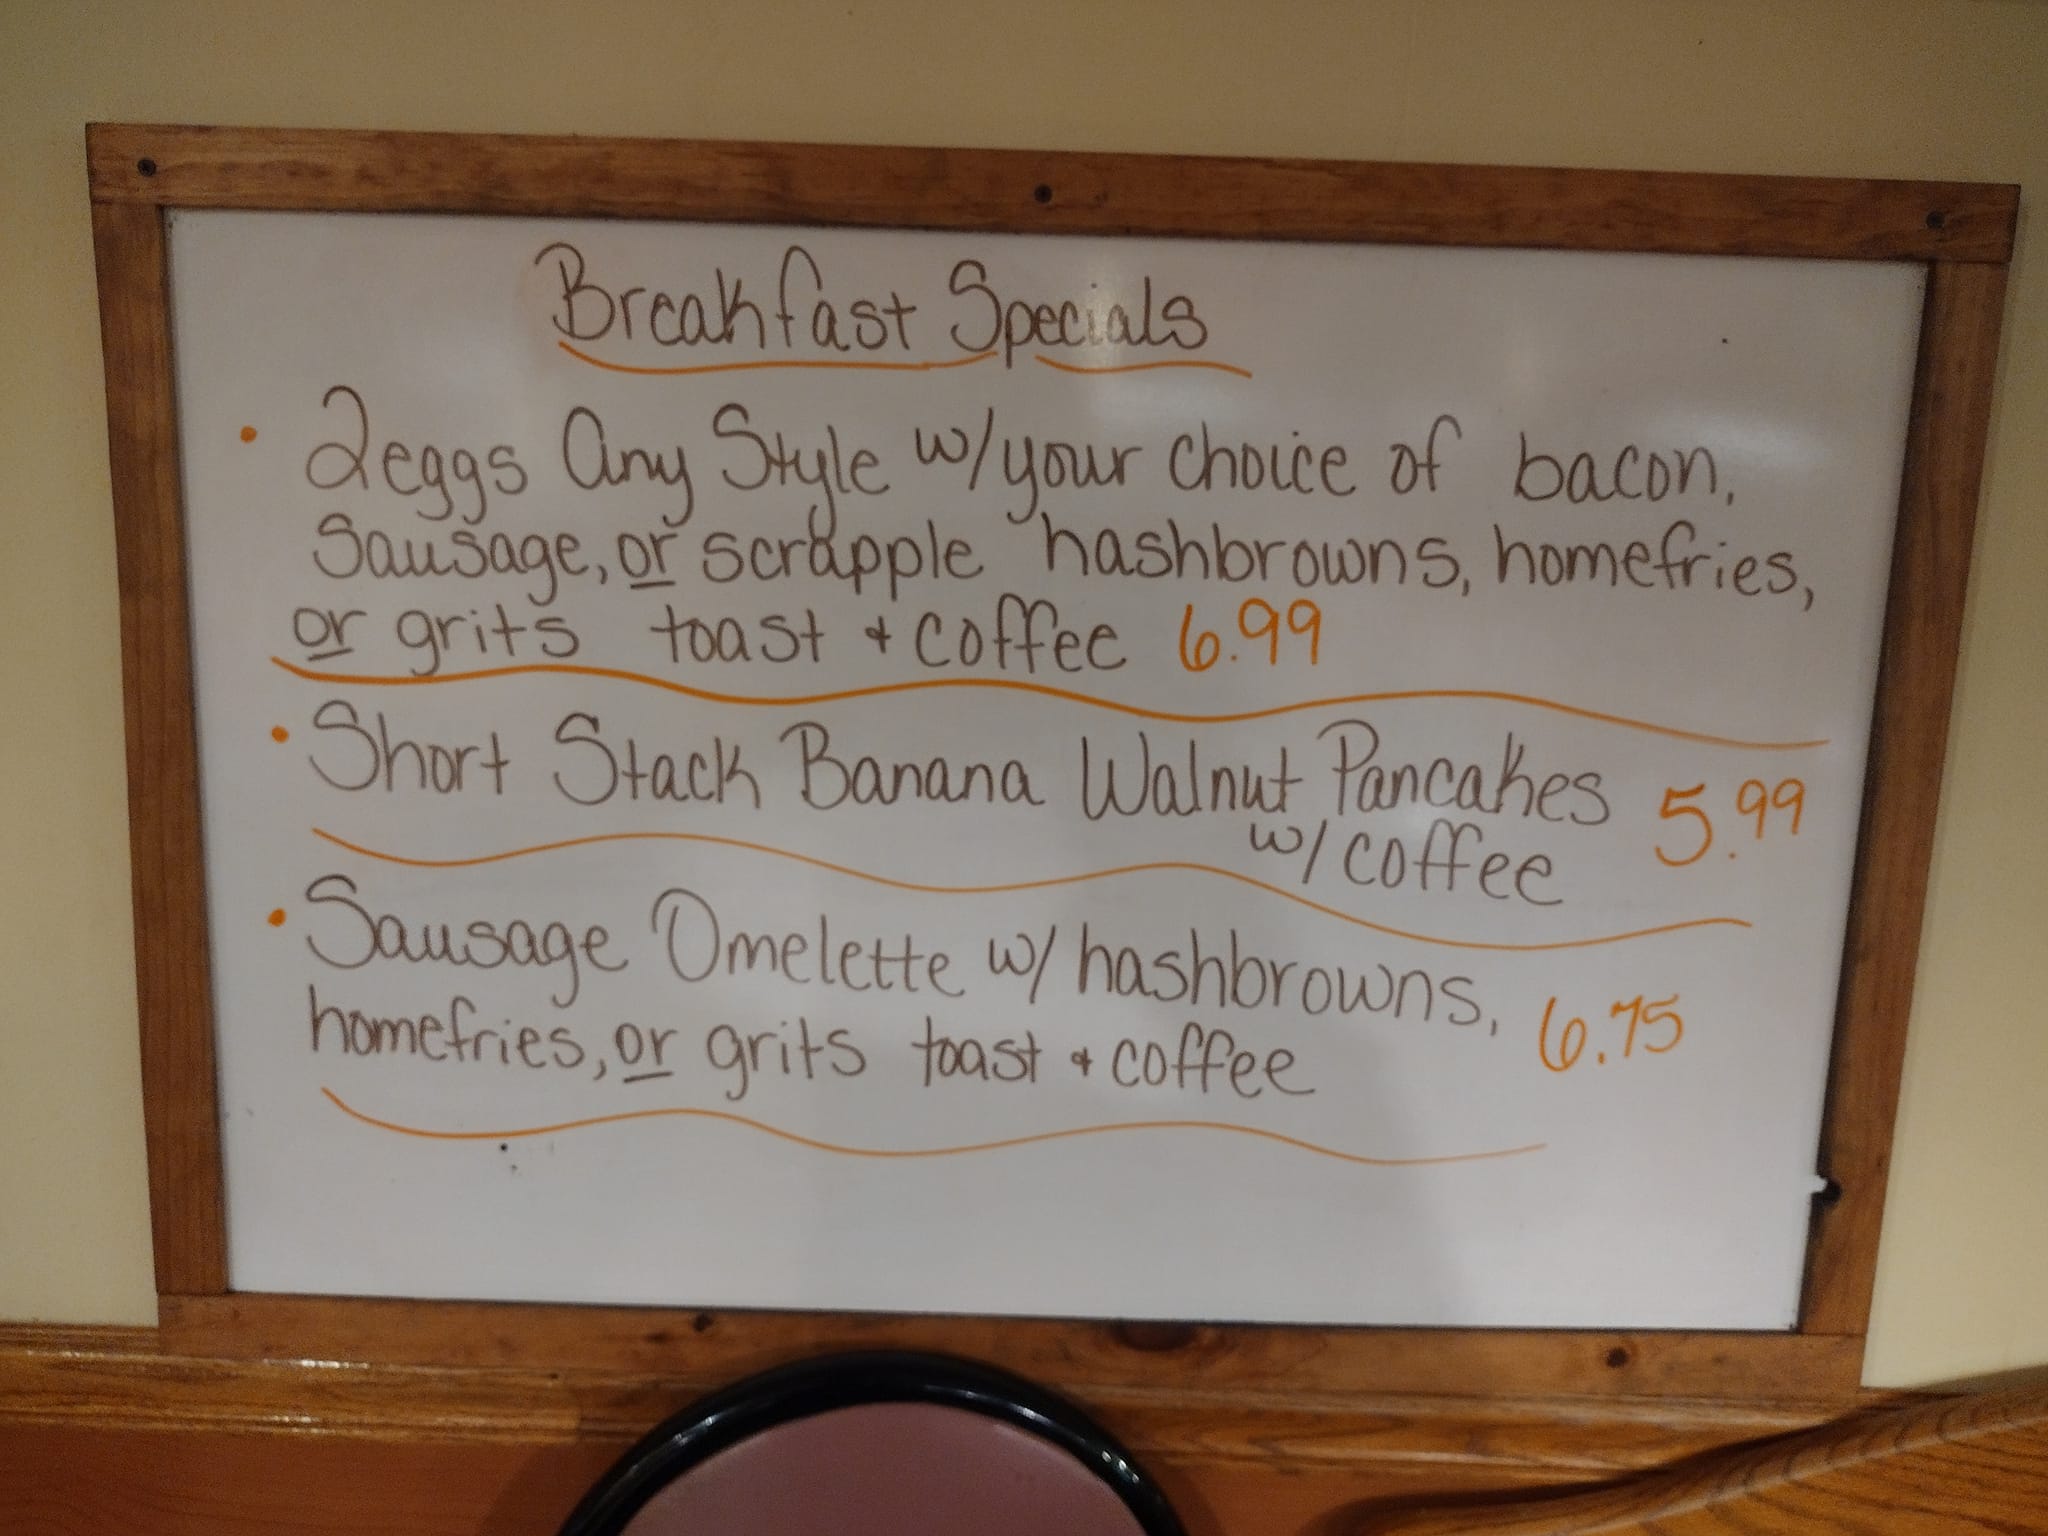 Breakfast Specials
• 2eggs Any Style w/your choice of bacon,
Sausage, or scrapple hashbrowns, homefries,
or grits toast + coffee 6.99
• Short Stack Banana Walnut Pancakes 5.99
w/coffee
• Sausage Omelette w/ hashbrowns, 6.75
homefries, or grits toast + coffee